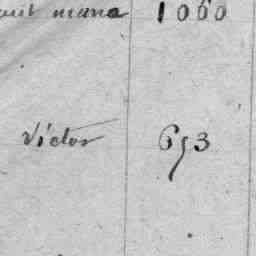 mana 1060
Victor 653